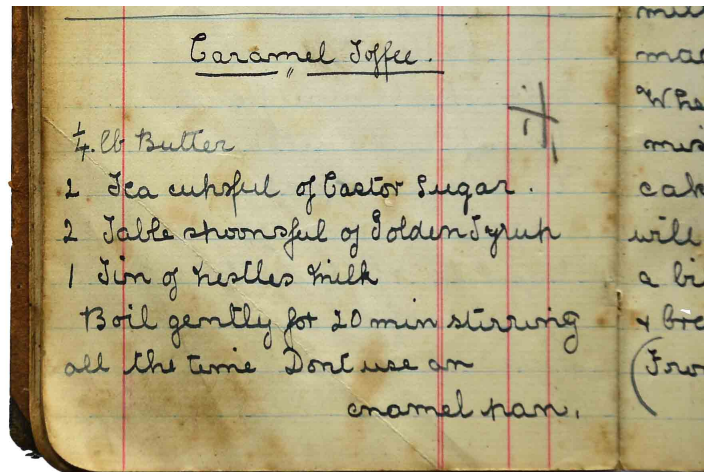 Caramel Toffee.
1/4 lb Butter
2 Tea cupsful of Castor Sugar.
2 Table spoonsful of Golden Syrup
1 Tin of Nestles Milk
Boil gently for 20 min stirring
all the time Dont use an
enamel pan.
will
a